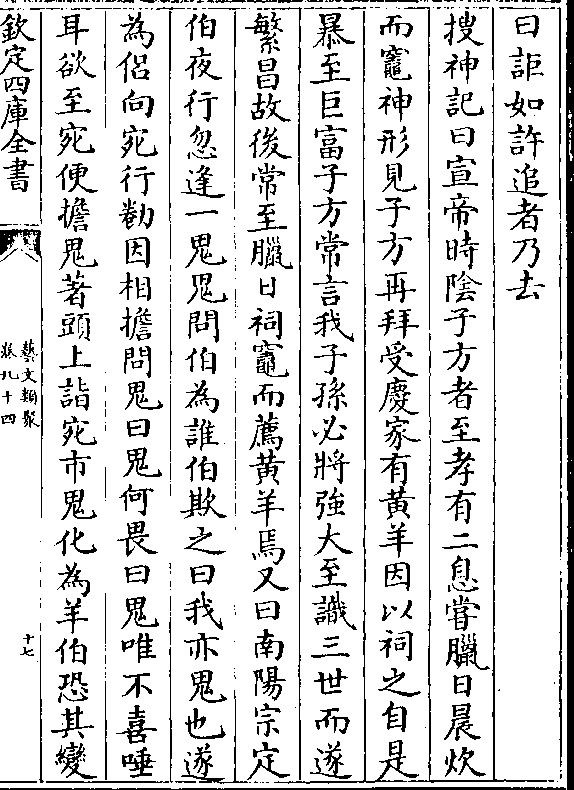 曰詎如許追者乃去
搜神記曰宣帝時陰子方者至孝有二息嘗臘日晨炊
而竈神形見子方再拜受慶家有黃羊因以祠之自是
暴至巨富子方常言我子孫必將強大至識三世而遂
繁昌故後常至臘日祠竈而薦黃羊焉又曰南陽宗定
伯夜行忽逢一鬼鬼問伯為誰伯欺之曰我亦鬼也遂
為侶向宛行勌因相擔問鬼曰鬼何畏曰鬼唯不喜唾
耳欲至宛便擔鬼著頭上詣宛市鬼化為羊伯恐其變
欽定四庫全書
藝文類聚
卷九十四
十七